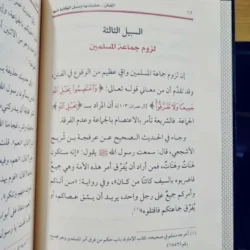 السبيل الثالثة
لزوم جماعة المسلمين
إن لزوم جماعة المسلمين واقٍ عظيم من الوقوع في الفتن،
وقد تقدَّم أن من معاني قوله تعالى: ﴿وَاعْتَصِمُوا بِحَبْلِ اللَّهِ
جَمِيعًا وَلَا تَفَرَّقُوا﴾ [آل عمران: ١٠٣]
الجماعة، فالشريعة تأمر بالاعتصام بالجماعة وعدم الفرقة.
وجاء في الحديث الصحيح عن عرفجة بن شريح
الأشجعي، قال: سمعت رسول الله ﷺ يقول: «إنه ستكون
هَنَاتٌ وهَنَاتٌ، فمن أراد أن يفرق أمر هذه الأمة وهي جميعٌ
فاضربوه بالسيف كائنًا من كان»، وفي رواية: «من أتاكم
وأمركم جميع على رجل واحد يريد أن يشق عصاكم أو
يُفرِّق جماعتكم فاقتلوه»(١)